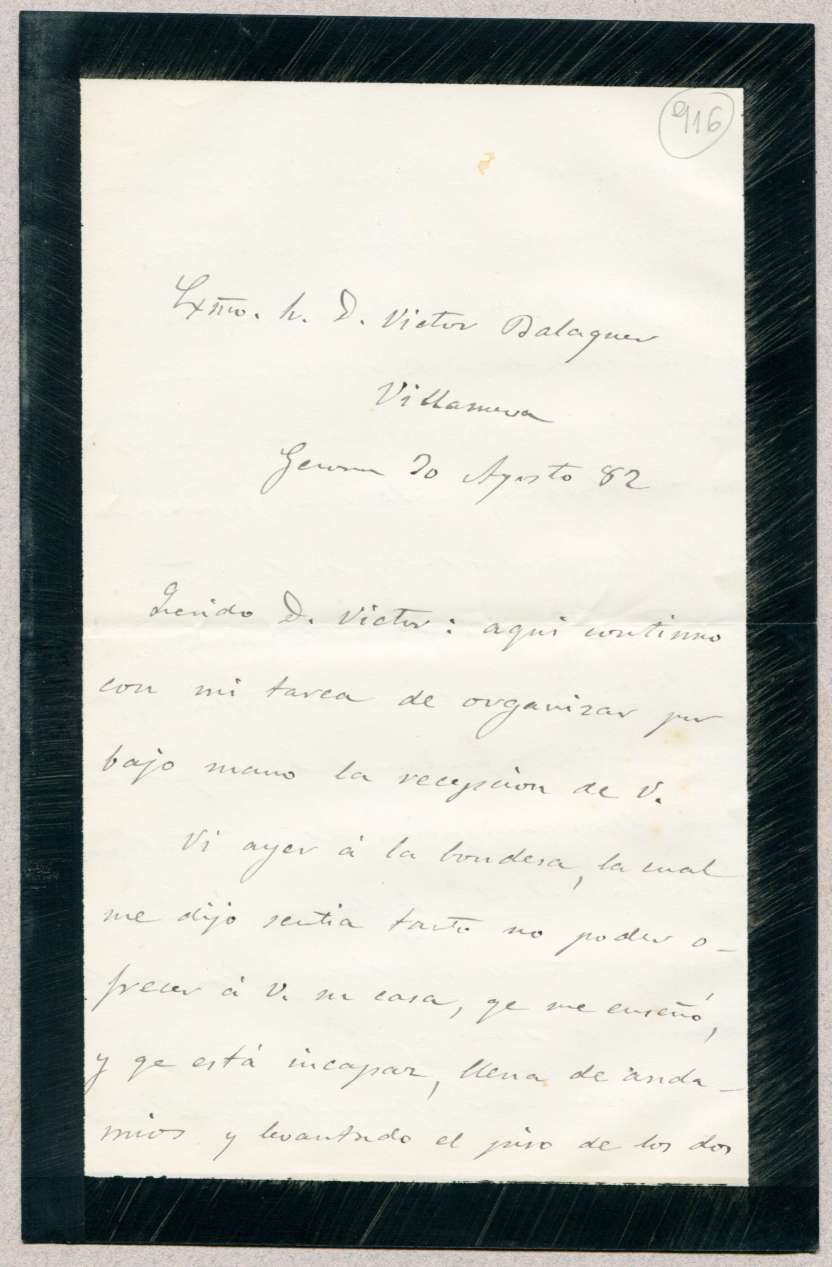 916
Exmo. Sr. D. Victor Balaguer
Villanueva
Gerona 20 Agosto 82
Querido D. Victor: aqui continuo
con mi tarea de organizar por
bajo mano la recepcion de V.
Vi ayer á la Condesa, la cual
me dijo sentia tanto no poder o-
frecer á V. su casa, qe me enseñó,
y qe está incapaz, llena de anda-
mios y levantado el piso de los dos